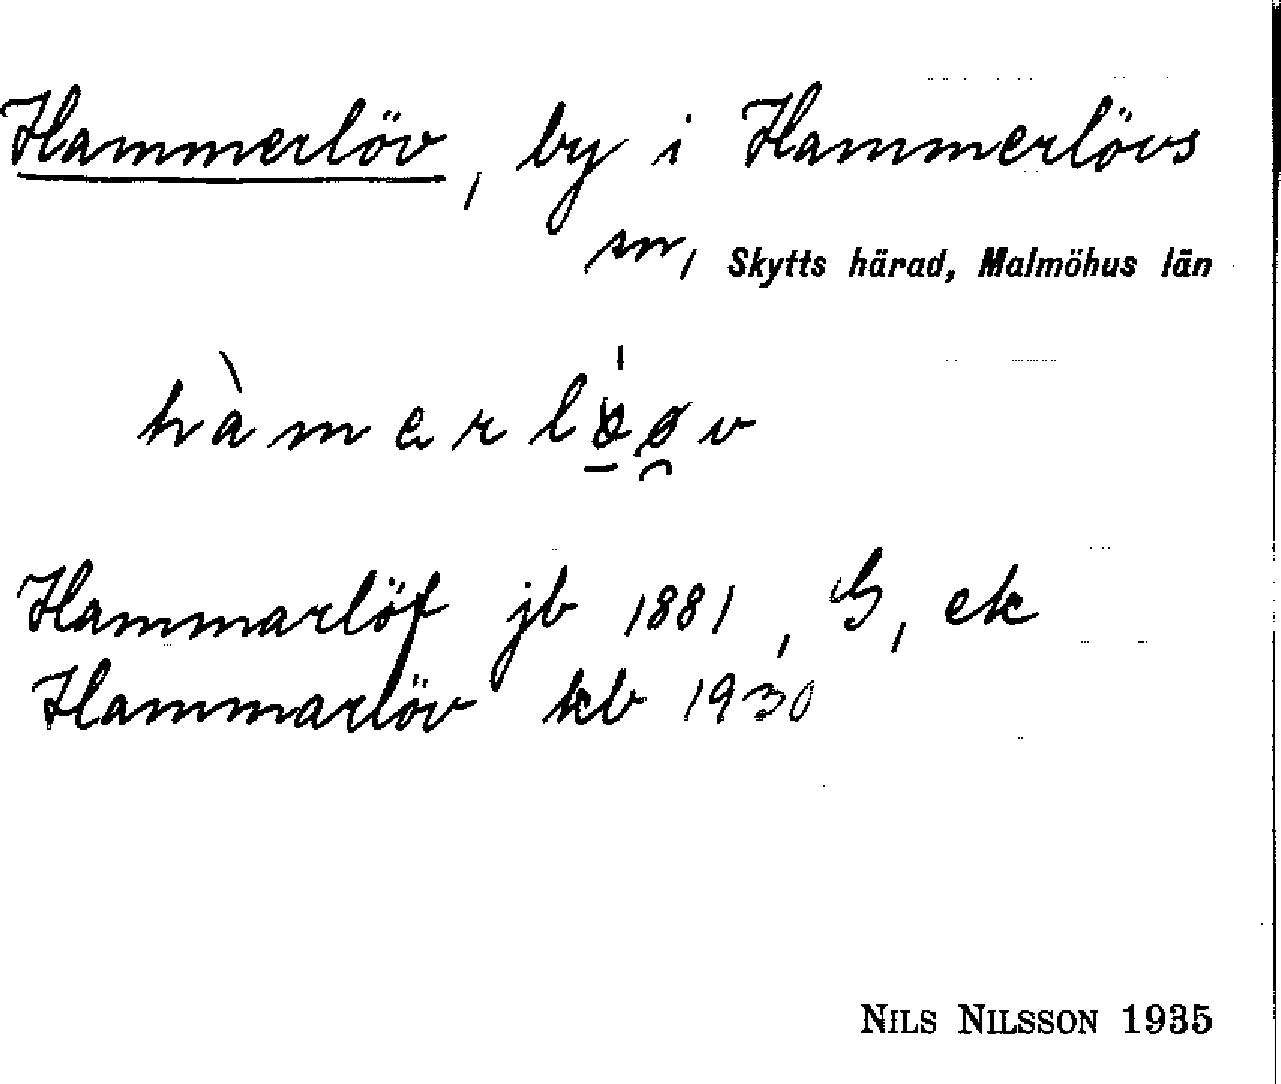 Hammerlöv, by i Hammerlövs
sn, Skytts härad, Malmöhus län
hàmerlöøv
Hammarlöf jb 1881, G, ek
Hammarlöv kb 1930
NILS NILSSON 1935